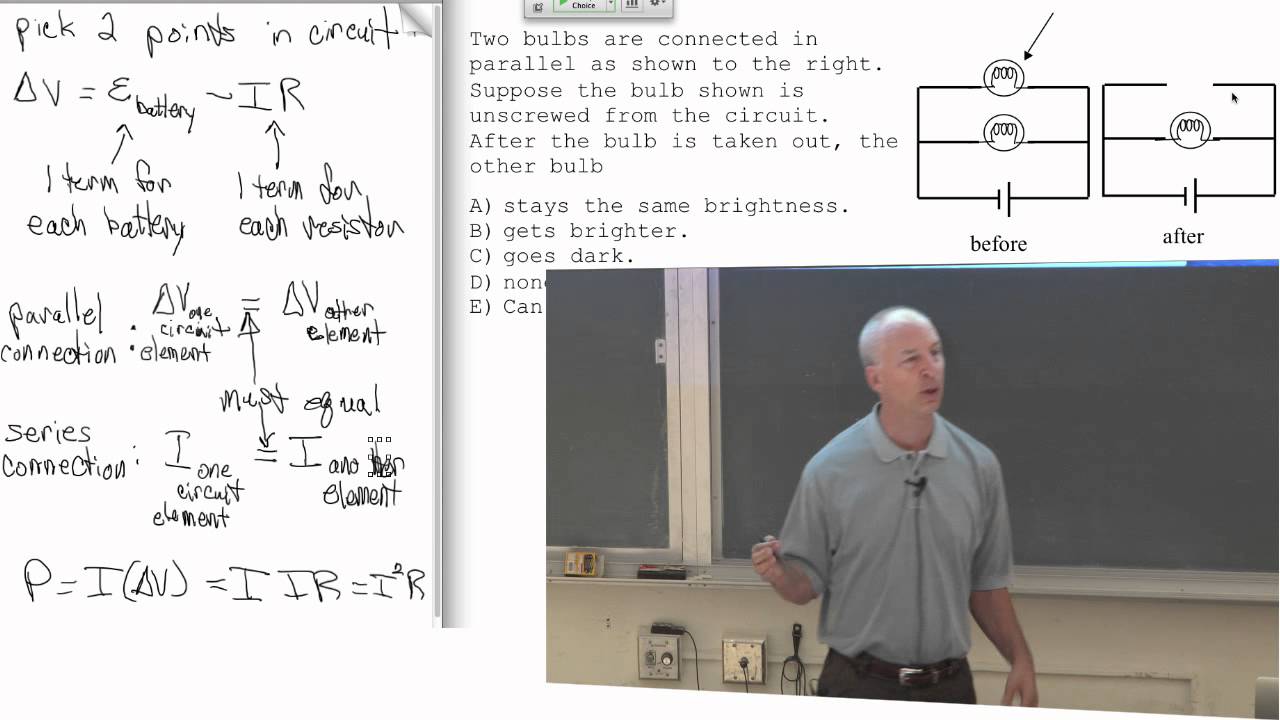 pick 2 points in circuit
ΔV = ε battery - IR
1 term for each battery
1 term for each resistor
parallel connection: ΔV one circuit element = ΔV other element
must equal
series connection: I one circuit element = I another element
P = I(ΔV) = I IR = I²R
Choice
Two bulbs are connected in
parallel as shown to the right.
Suppose the bulb shown is
unscrewed from the circuit.
After the bulb is taken out, the
other bulb
A) stays the same brightness.
B) gets brighter.
C) goes dark.
D) non
E) Can
before
after